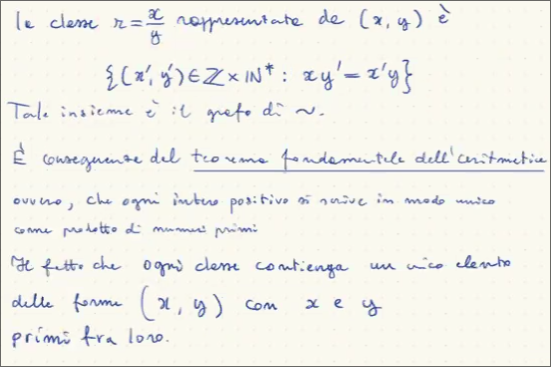 la classe r = x/y rappresentata da (x, y) è
{(x', y') ∈ ℤ × ℕ* : xy' = x'y}
Tale insieme è il grafo di ~.
È conseguenza del teorema fondamentale dell'aritmetica
ovvero, che ogni intero positivo si scrive in modo unico
come prodotto di numeri primi
Il fatto che ogni classe contenga un unico elemento
della forma (x, y) con x e y
primi fra loro.